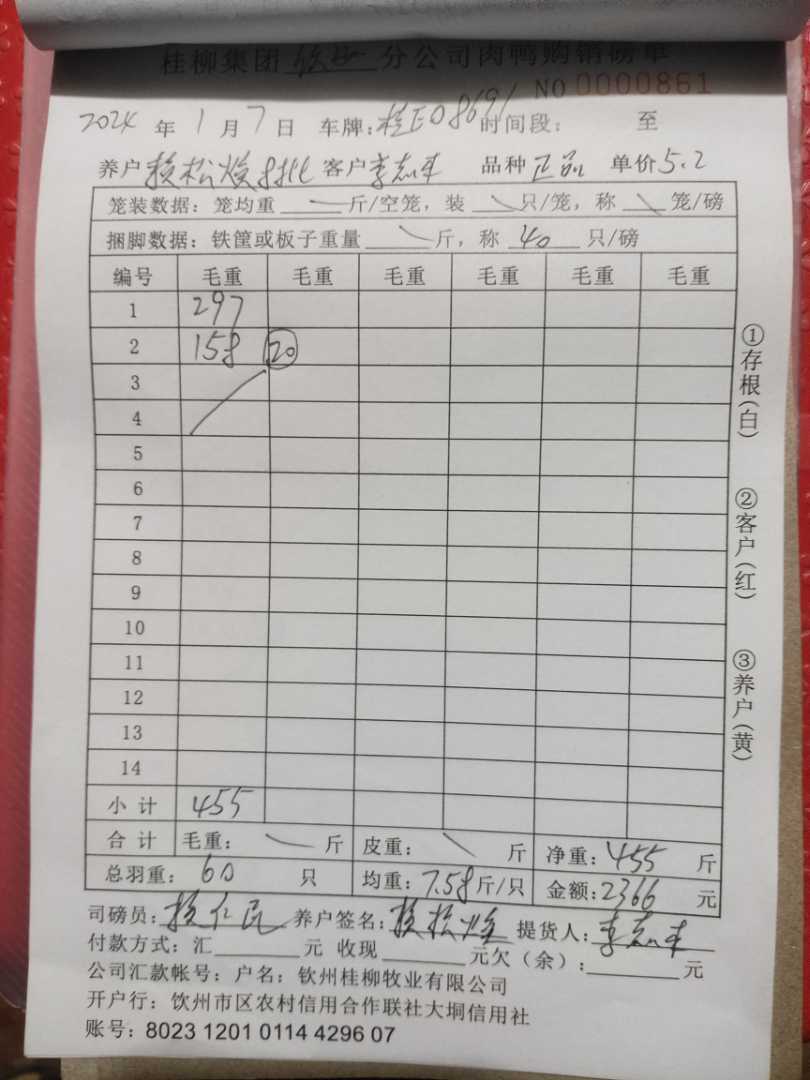 桂柳集团 钦州 分公司肉鸭购销磅单
NO 0000861
2024 年 1 月 7 日 车牌：桂E08691 时间段： 至
养户 松焕 客户 李志军 品种 正品 单价 5.2
笼装数据：笼均重 斤/空笼，装 只/笼，称 笼/磅
捆脚数据：铁筐或板子重量 斤，称 40 只/磅
编号 毛重 毛重 毛重 毛重 毛重 毛重
1 297
2 158 20
3
4
5
6
7
8
9
10
11
12
13
14
小 计 455
合 计 毛重： 斤 皮重： 斤 净重：455 斤
总羽重：60 只 均重：7.58 斤/只 金额：2366 元
司磅员： 仁民 养户签名： 松焕 提货人：李志军
付款方式：汇 元 收现 元欠（余）： 元
公司汇款帐号：户名：钦州桂柳牧业有限公司
开户行：饮州市区农村信用合作联社大垌信用社
账号：8023 1201 0114 4296 07
①存根（白）
②客户（红）
③养户（黄）